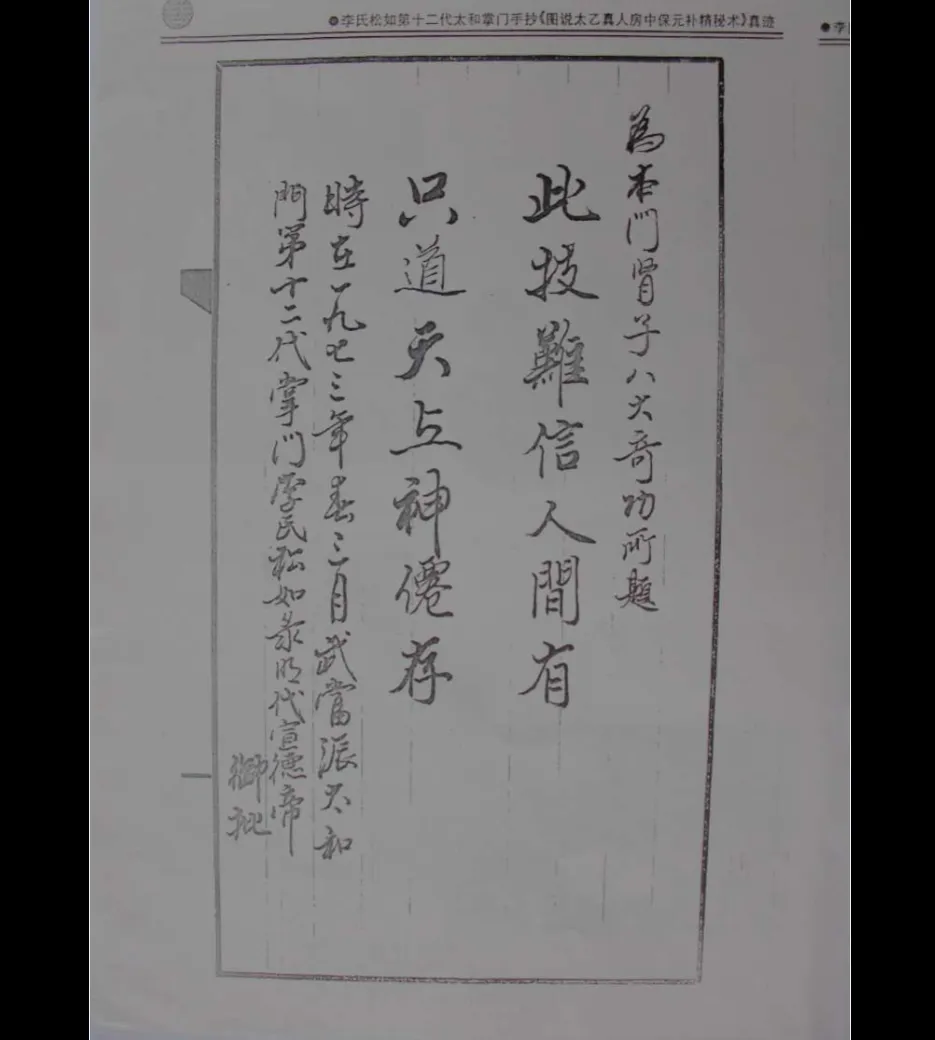 ●李氏松如第十二代太和掌门手抄《图说太乙真人房中保元补精秘术》真迹
●李
為本门肾子八大奇功所题
此技難信人間有
只道天上神僊存
時在一九七三年春三月武當派太和
门第十二代掌门李氏松如录明代宣德帝
御批